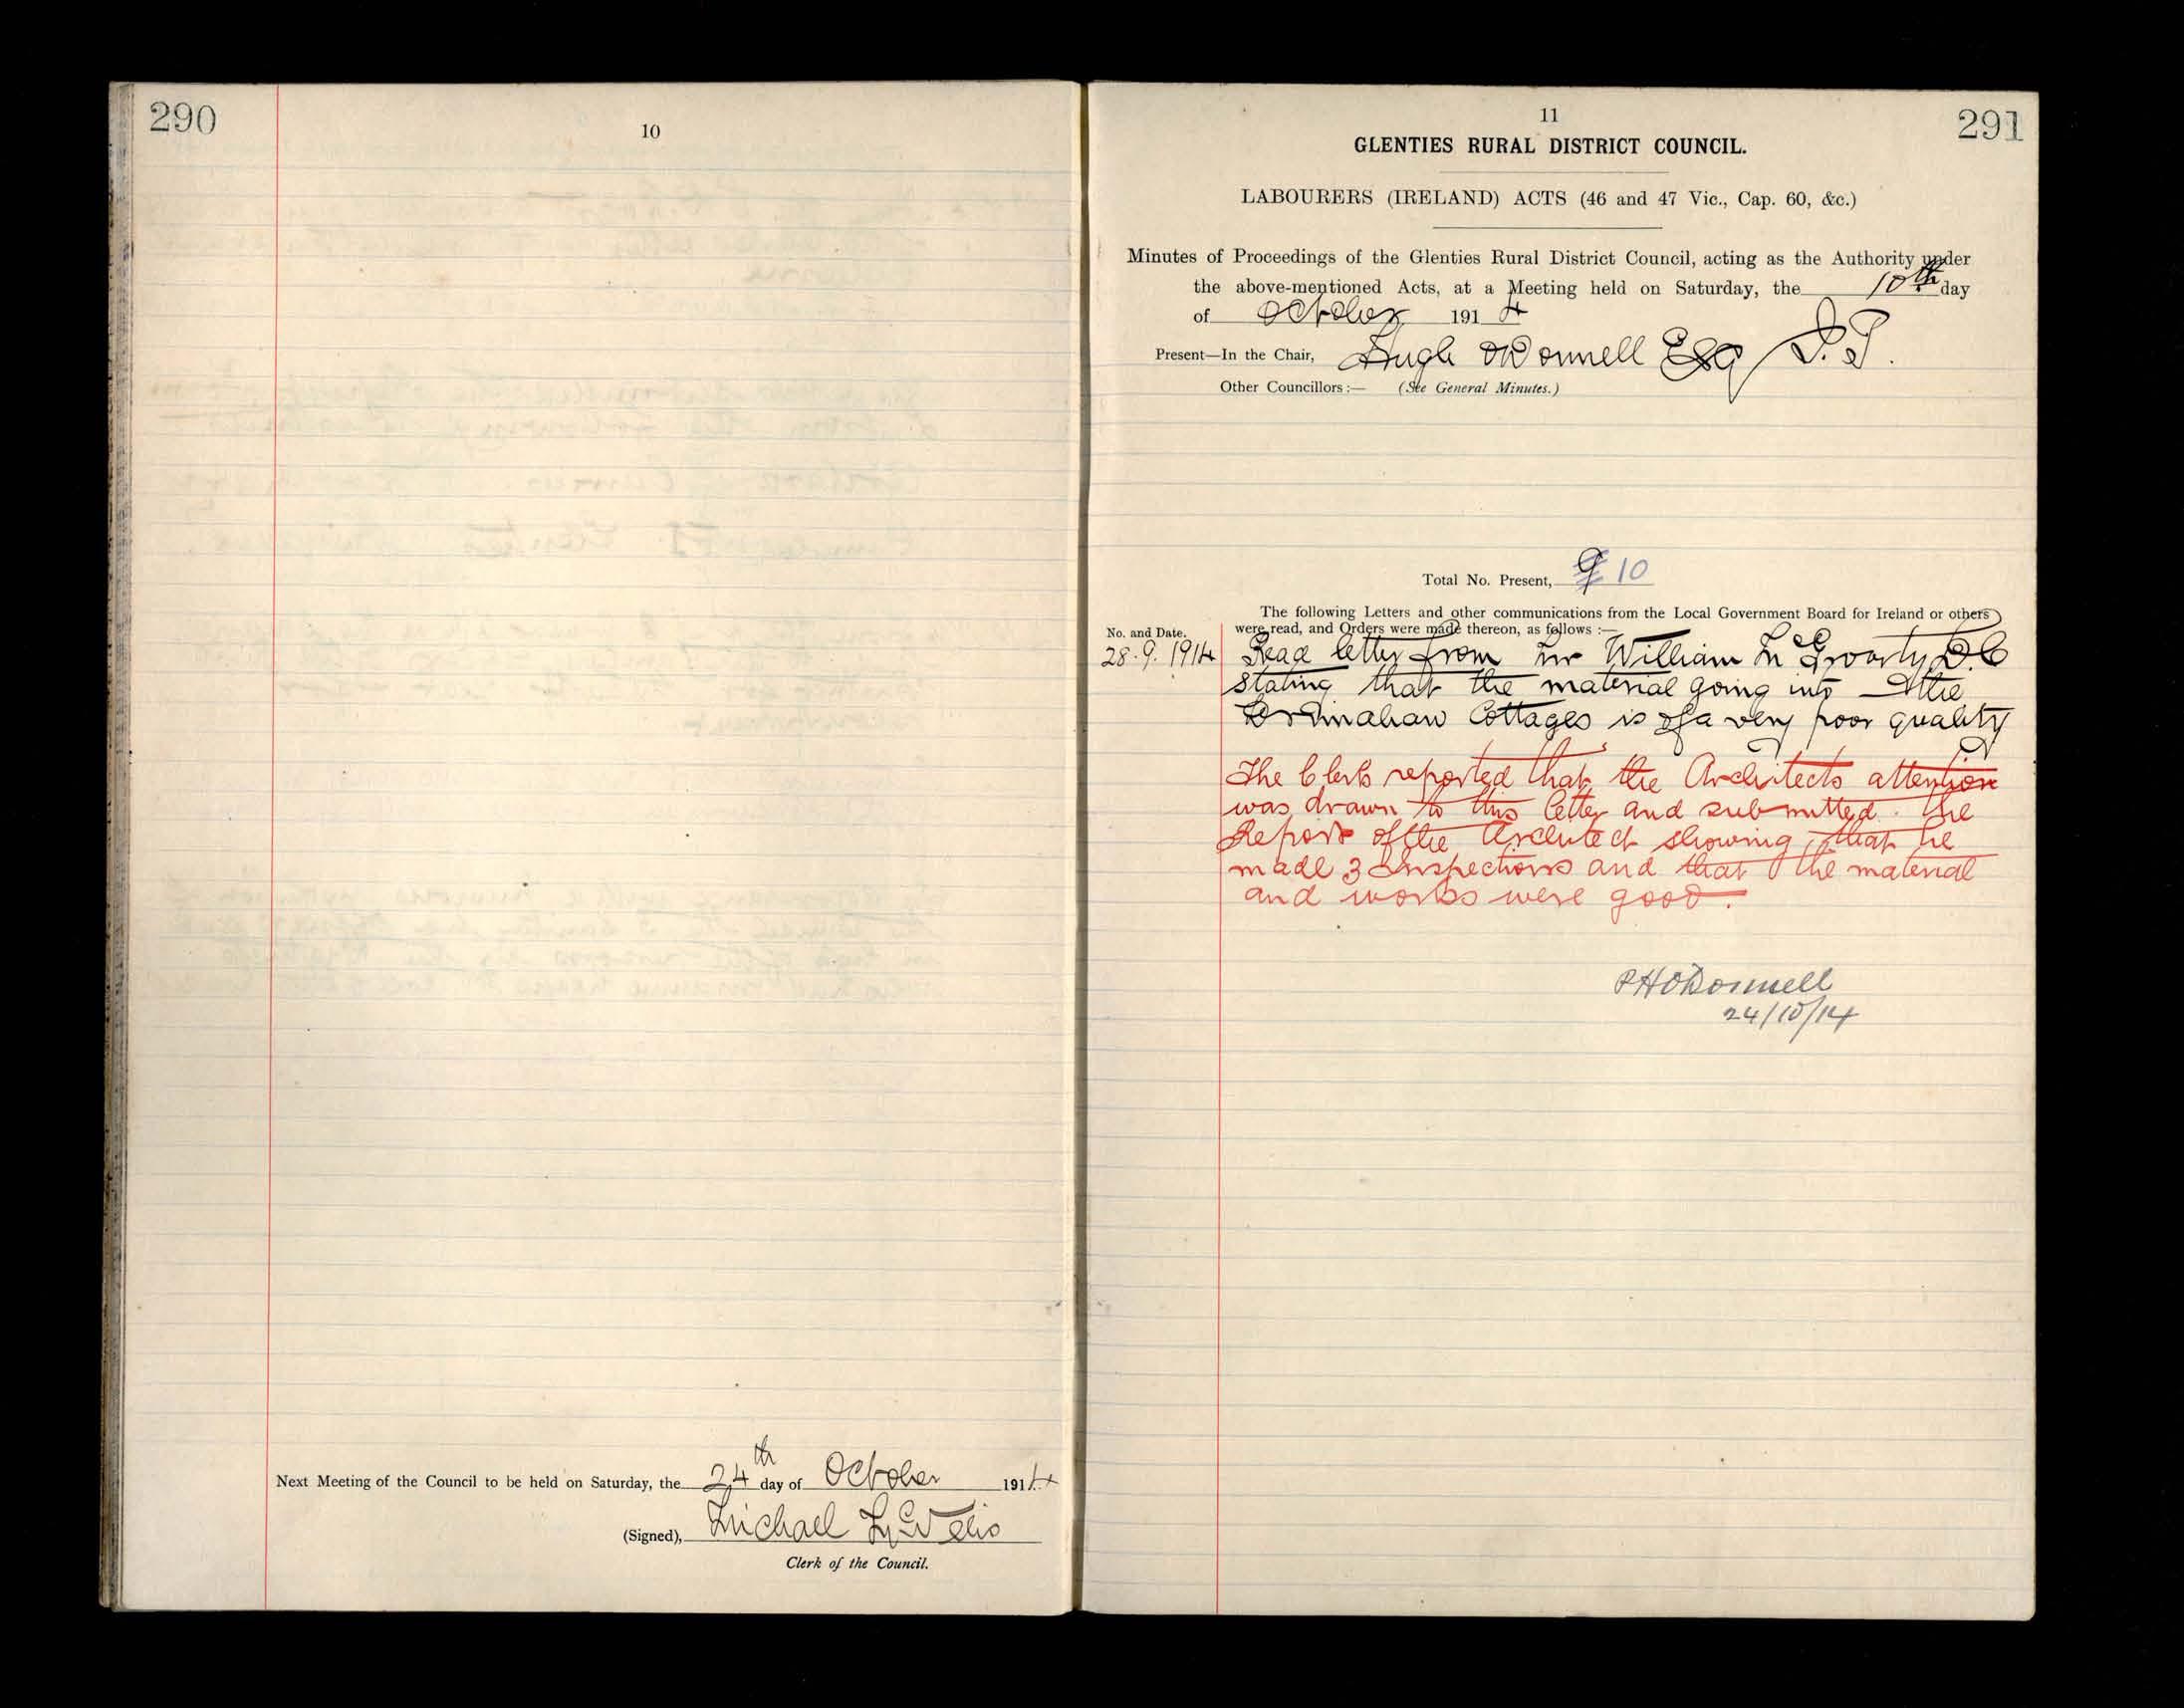 290
10
Next Meeting of the Council to be held on Saturday, the 24th day of October 1914
(Signed), Michael
Clerk of the Council.
291
11
GLENTIES RURAL DISTRICT COUNCIL.
LABOURERS (IRELAND) ACTS (46 and 47 Vic., Cap. 60, &c.)
Minutes of Proceedings of the Glenties Rural District Council, acting as the Authority under
the above-mentioned Acts, at a Meeting held on Saturday, the 10th day
of October 1914
Present—In the Chair, Hugh O'Donnell Esq J.P.
Other Councillors:— (See General Minutes.)
Total No. Present, 9 10
The following Letters and other communications from the Local Government Board for Ireland or others
No. and Date. were read, and Orders were made thereon, as follows :—
28.9.1914 Read letter from Mr William McGroarty D.C
stating that the material going into the
Cottages is of a very poor quality
The Clerk reported that the Architects attention
was drawn to this letter and submitted the
Report of the Architect showing that he
made 3 Inspections and that the material
and works were good.
PHODonnell
24/10/14